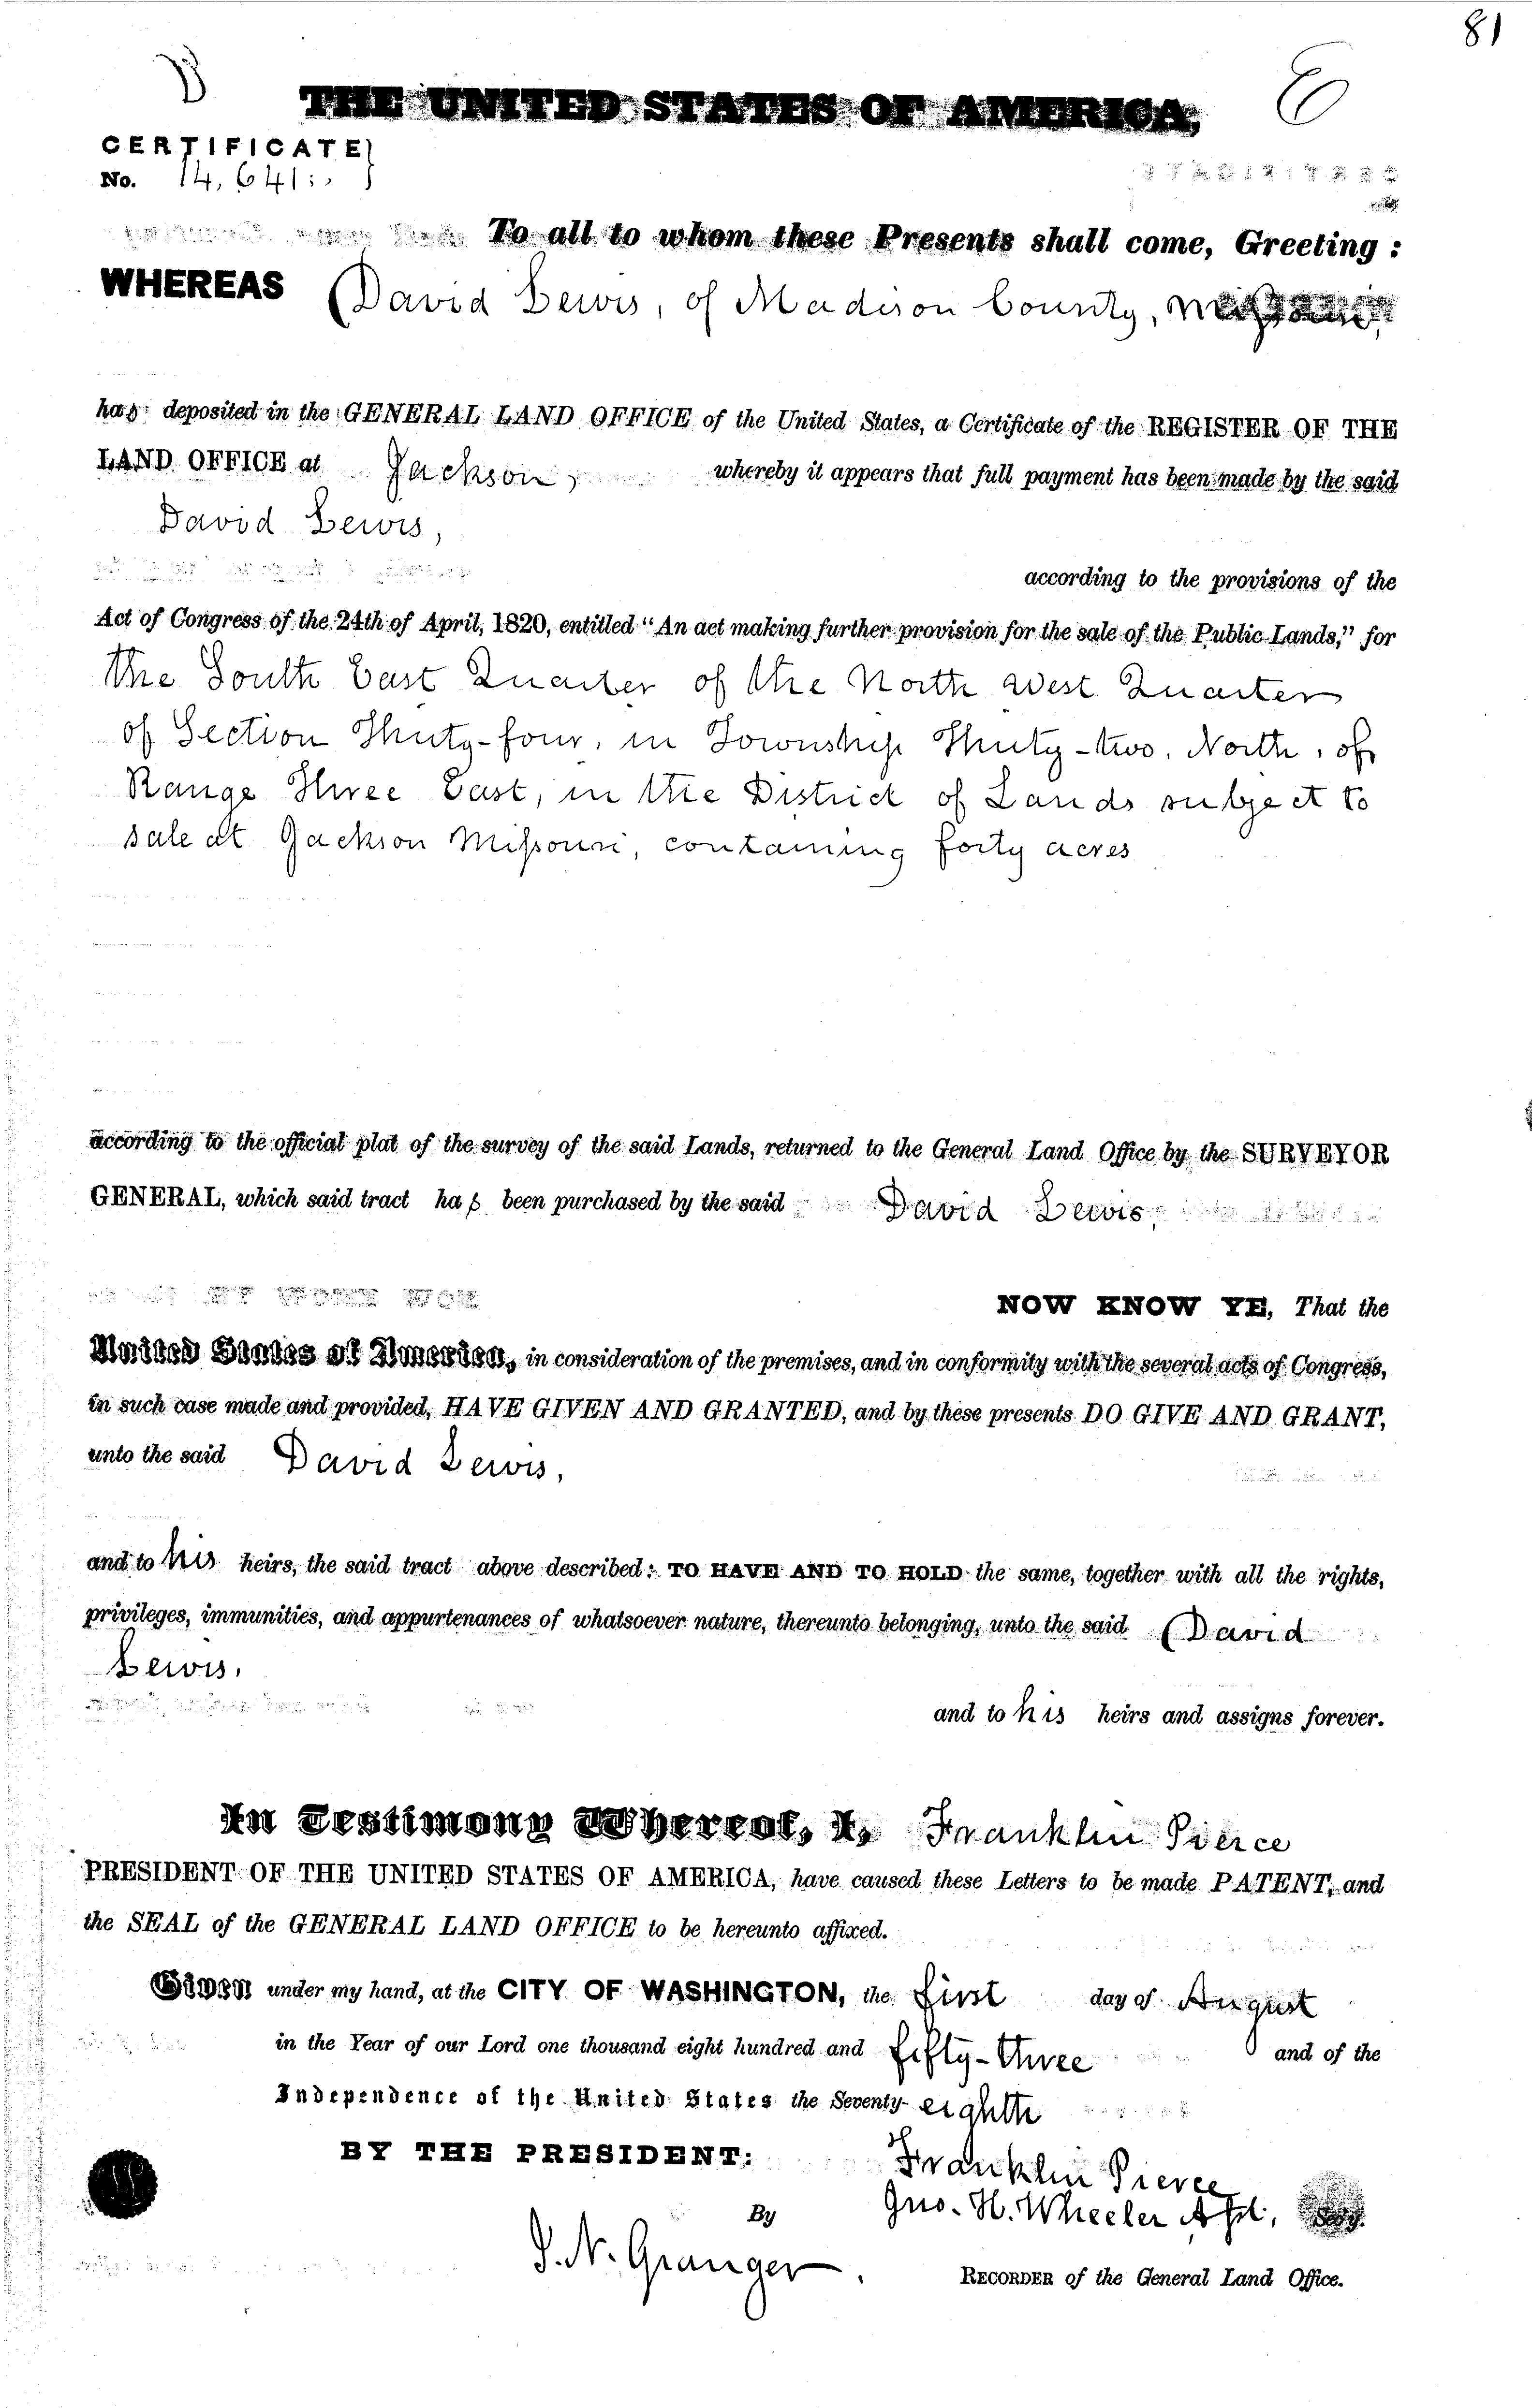 81
THE UNITED STATES OF AMERICA,
CERTIFICATE
No. 14,641
To all to whom these Presents shall come, Greeting :
WHEREAS David Lewis, of Madison County, Missouri,
has deposited in the GENERAL LAND OFFICE of the United States, a Certificate of the REGISTER OF THE
LAND OFFICE at Jackson, whereby it appears that full payment has been made by the said
David Lewis,
according to the provisions of the
Act of Congress of the 24th of April, 1820, entitled "An act making further provision for the sale of the Public Lands," for
the South East Quarter of the North West Quarter
of Section Thirty-four, in Township Thirty-two, North, of
Range Three East, in the District of Lands subject to
sale at Jackson Missouri, containing forty acres
according to the official plat of the survey of the said Lands, returned to the General Land Office by the SURVEYOR
GENERAL, which said tract has been purchased by the said David Lewis,
NOW KNOW YE, That the
United States of America, in consideration of the premises, and in conformity with the several acts of Congress,
in such case made and provided, HAVE GIVEN AND GRANTED, and by these presents DO GIVE AND GRANT,
unto the said David Lewis,
and to his heirs, the said tract above described: TO HAVE AND TO HOLD the same, together with all the rights,
privileges, immunities, and appurtenances of whatsoever nature, thereunto belonging, unto the said David
Lewis,
and to his heirs and assigns forever.
In Testimony Whereof, I, Franklin Pierce
PRESIDENT OF THE UNITED STATES OF AMERICA, have caused these Letters to be made PATENT, and
the SEAL of the GENERAL LAND OFFICE to be hereunto affixed.
Given under my hand, at the CITY OF WASHINGTON, the first day of August
in the Year of our Lord one thousand eight hundred and fifty-three and of the
Independence of the United States the Seventy-eighth
BY THE PRESIDENT: Franklin Pierce
By Jno. H. Wheeler Asst. Secy.
J. N. Granger. RECORDER of the General Land Office.